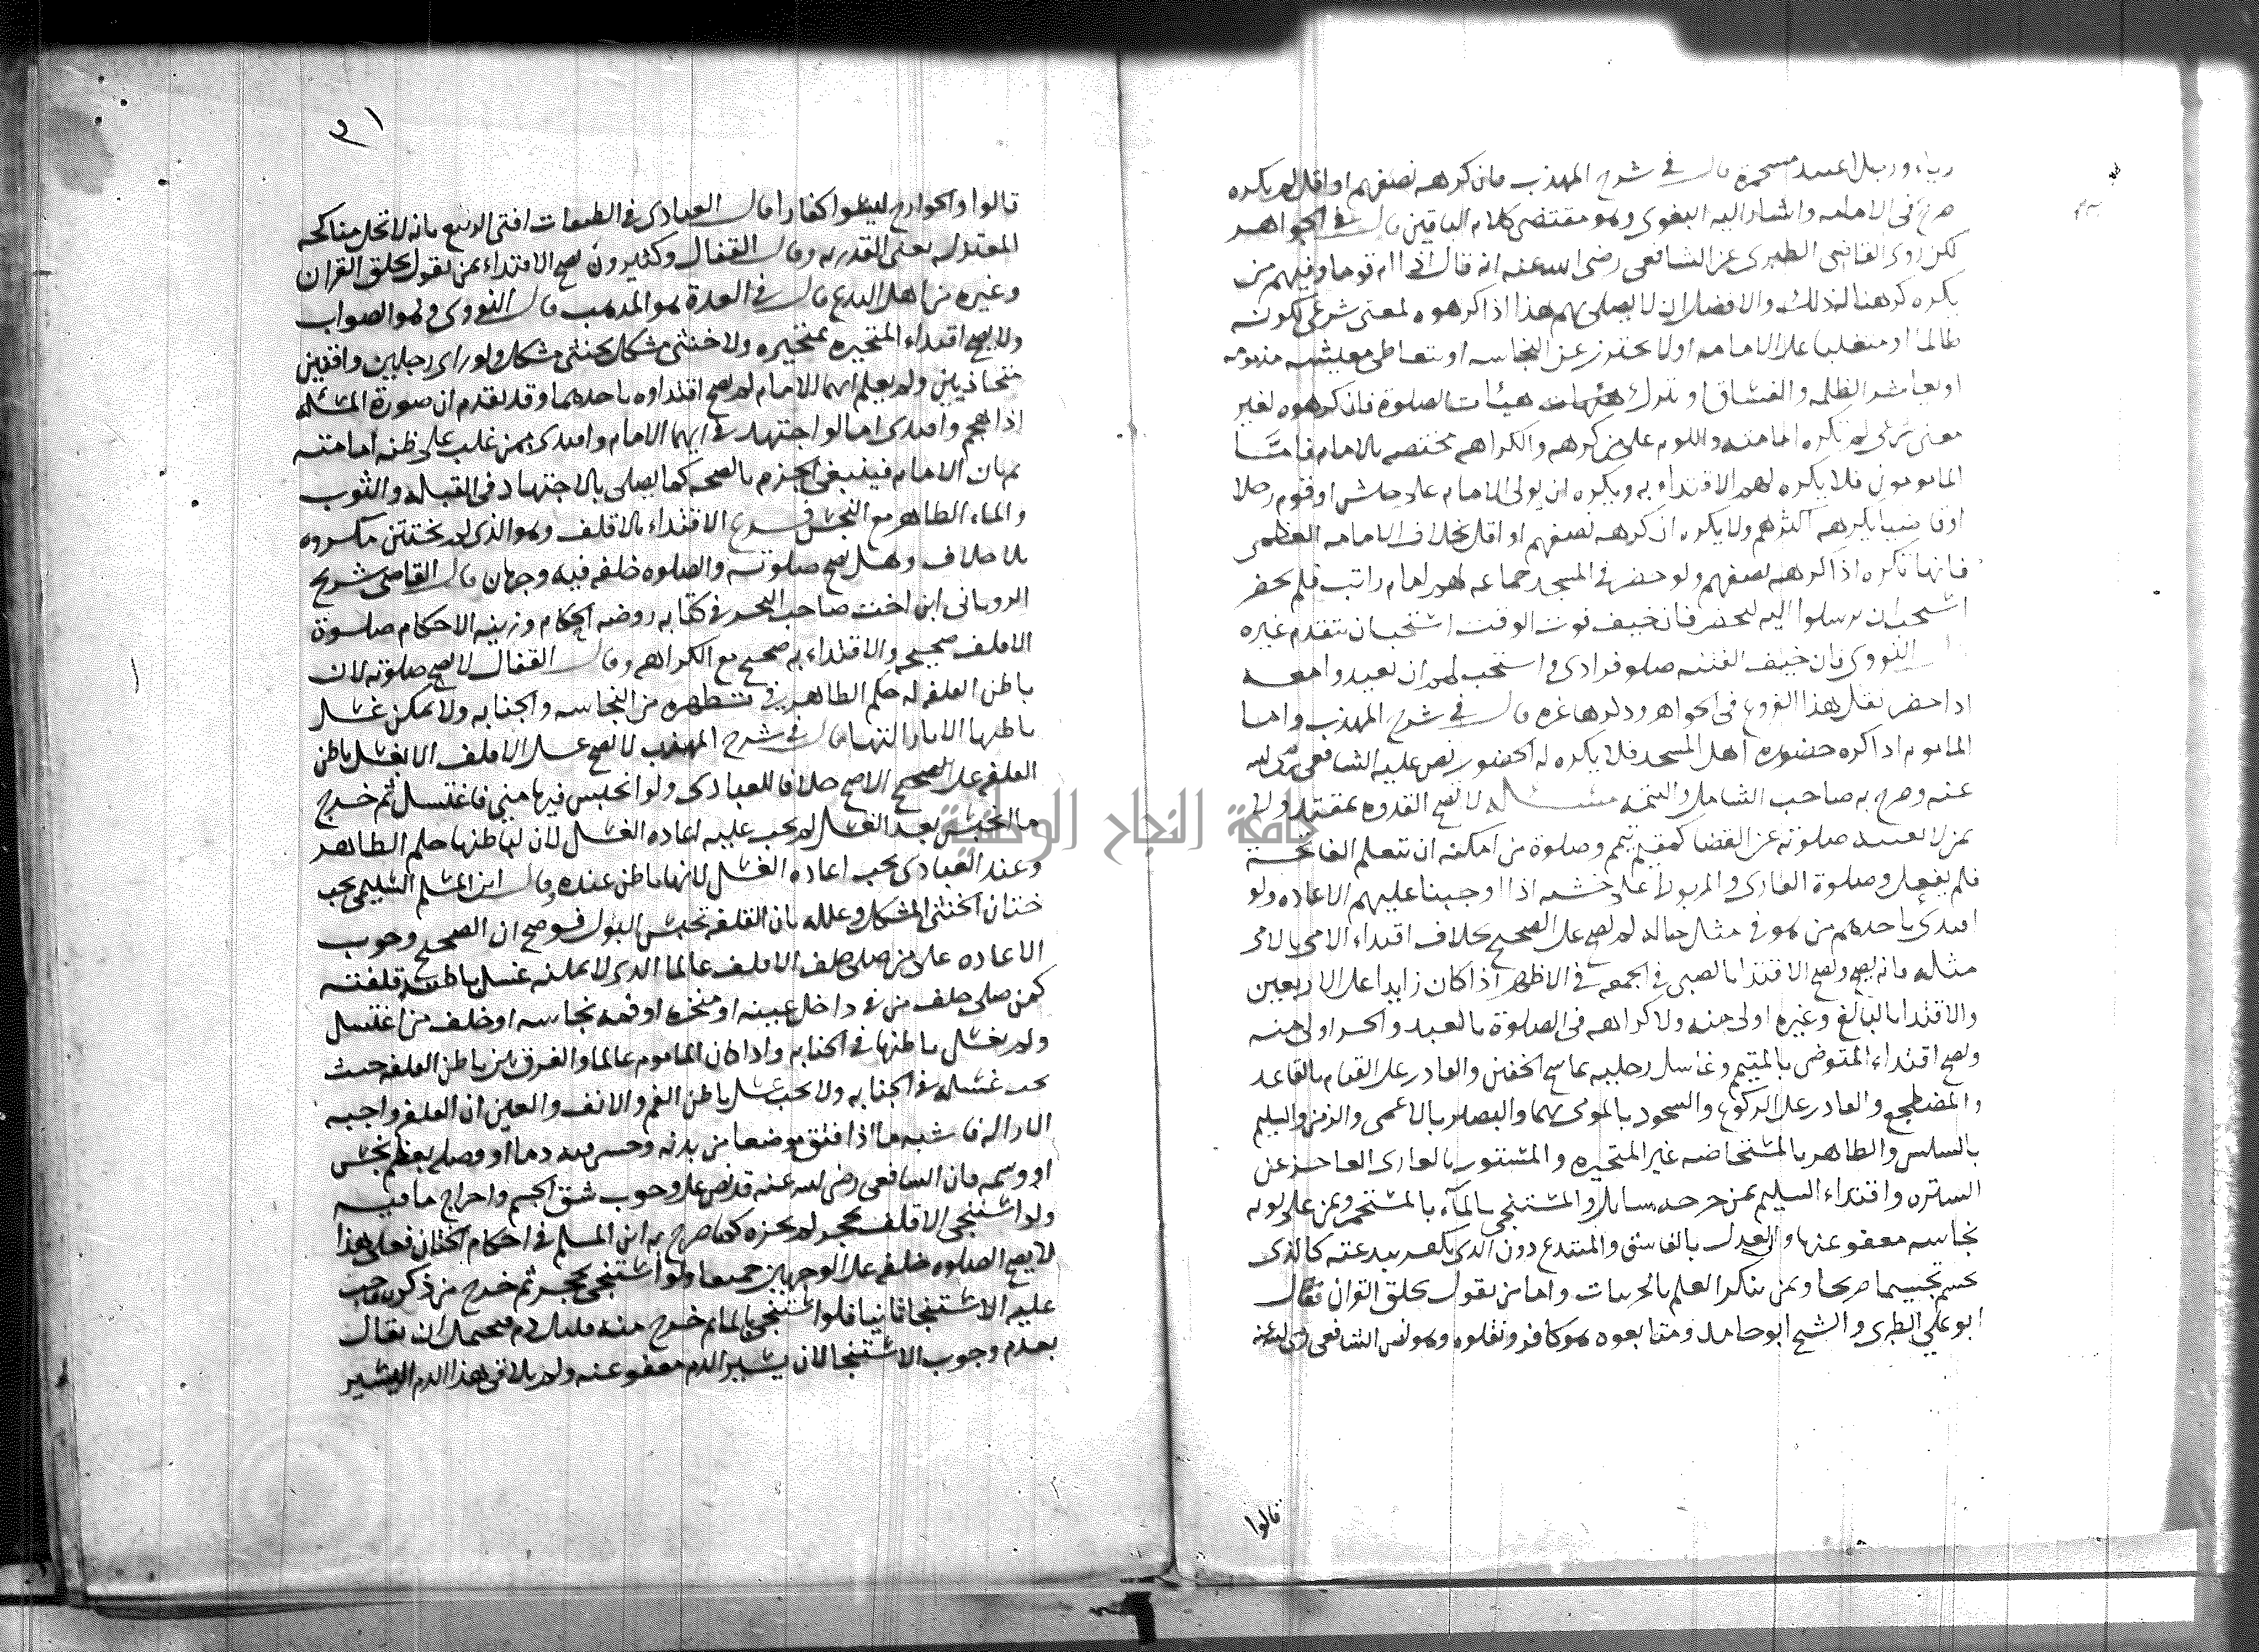 في شرح المهذب فان كرهه نصفهم او اقل لم يكره
صرح في الامامه واشار اليه البغوي وهو مقتضى كلام الباقين قال في الجواهر
لكن روى القاضي الطبري عن الشافعي رضي الله عنه انه قال اذا ام قوما وفيهم من
يكره كرهنا لذلك والافضل ان لا يصلي بهم هذا اذا كرهوه لمعنى شرعي ككونه
ظالما او متغلبا على الامامه او لا يحترز عن النجاسه او يتعاطى معيشه مذمومه
او يعاشر الظلمه والفساق او يترك هيئات الصلوة فان كرهوه لغير
معنى شرعي لم تكره امامته واللوم على من كرهه والكراهه مختصه بالامام فامّا
المامومون فلا يكره لهم الاقتداء به ويكره ان يولى الامام على جيش او قوم رجلا
او قاضيا يكرهه اكثرهم ولا يكره ان كرهه نصفهم او اقل بخلاف الامامه العظمى
فانها تكره اذا كرهه نصفهم ولو حضر في المسجد جماعه لهم امام راتب فلم يحضر
استحب ان يرسلوا اليه ليحضر فان خيف فوت الوقت استحب ان يتقدم غيره
النووي فان خيف الفتنه صلوا فرادى واستحب لهم ان يعيدوا معه
اذا حضر نقل هذا الفروع في الجواهر وذكرها غيره قال في شرح المهذب واما
الماموم اذا كره حضوره اهل المسجد فلا يكره له الحضور نص عليه الشافعي رضي الله
عنه وصرح به صاحب الشامل والتتمه مسئله لا تصح القدوه بمقتد ولا
بمن لا تغنيه صلوته عن القضا كمقيم تيمم وصلوة من امكنه ان يتعلم الفاتحة
فلم يفعل وصلوة العاري والمربوط على خشبه اذا اوجبنا عليهم الاعاده ولو
اقتدى باحدهم من هو في مثل حاله لم يصح على الصحيح بخلاف اقتداء الامي بالامي
مثله فانه يصح ويصح الاقتدا بالصبي في الجمعه في الاظهر اذا كان زايدا على الاربعين
والاقتدا بالبالغ وغيره اولى منه ولا كراهه في الصلوة بالعبد والحر اولى منه
ويصح اقتداء المتوضي بالمتيمم وغاسل رجليه بماسح الخفين والقادر على القيام بالقاعد
والمضطجع والقادر على الركوع والسجود بالمومي بهما والبصير بالاعمى والزمن والسليم
بالسلس والطاهر بالمستحاضه غير المتحيره والمستور بالعاري العاجز عن
الستره واقتداء السليم بمن جرحه سايل والمستنجي بالمآء بالمستجمر وبمن على ثوبه
نجاسه معفو عنها والعدل بالفاسق والمبتدع دون الذي يكفر ببدعته كالذي
يجسم تجسيما صريحا وبمن ينكر العلم بالجزيات واما من يقول بخلق القران فقال
ابو علي الطبري والشيخ ابو حامد ومتابعوه هو كافر ونقلوه وهو نص الشافعي رضي الله عنه
قالوا
٣١
قالوا والخوارج ليسوا كفارا قال العبادي في الطبقات افتى الربيع بانه لا تحل مناكحه
المعتزله يعني القدريه وقال القفال وكثيرون يصح الاقتداء بمن يقول بخلق القران
وغيره من اهل البدع قال في العدة هو المذهب قال النووي وهو الصواب
ولا يصح اقتداء المتحيره بمتحيره ولا خنثى مشكل بخنثى مشكل ولو راى رجلين واقفين
متحاذيين ولم يعلم ايهما الامام لم يصح اقتداوه باحدهما وقد تقدم ان صورة المسئله
اذا هجم واقتدى اما لو اجتهد في ايهما الامام واقتدى بمن غلب على ظنه امامته
ثم بان الامام فينبغي الجزم بالصحه كما يصلي بالاجتهاد في القبله والثوب
والماء الطاهر مع النجس فرع الاقتداء بالاقلف وهو الذي لم يختتن مكروه
بلا خلاف وهل تصح صلوته والصلوه خلفه فيه وجهان قال القاضي شريح
الروياني ابن اخت صاحب البحر في كتابه روضه الحكام وزينه الاحكام صلوة
الاقلف صحيحه والاقتداء به صحيح مع الكراهه وقال القفال لا تصح صلوته لان
باطن القلفه له حكم الظاهر في تطهره من النجاسه والجنابه ولا يمكن غسل
باطنها الا بازالتها قال في شرح المهذب لا يصح غسل الاقلف الا بغسل باطن
القلفه على الصحيح الاصح خلافا للعبادي ولو انحبس فيها مني فاغتسل ثم خرج
ما انحبس بعد الغسل لم يجب عليه اعاده الغسل لان لباطنها حكم الظاهر
وعند العبادي يجب اعاده الغسل لانها باطن عنده وقال ابن المسلم السليمي يجب
ختان الخنثى المشكل وعلله بان القلفه تحبس البول فوضح ان الصحيح وجوب
الاعاده على من صلى خلف الاقلف عالما الذي لا يمكنه غسل باطن قلفته
كمن صلى خلف من في داخل عينه او منخره او فمه نجاسه او خلف من اغتسل
ولم يغسل باطنها في الجنابه واذا كان الماموم عالما والفرق بين باطن القلفه حيث
يجب غسله في الجنابه ولا يجب غسل باطن الفم والانف والعين ان القلفه واجبه
الازاله فاشبه ما اذا فتق موضعا من بدنه وحبس فيه دما او وصله بعظم نجس
او وسمه فان الشافعي رضي الله عنه قد نص على وجوب شق الجسم واخراج ما فيه
ولو استنجى الاقلف بحجر لم يجزه كما صرح به ابن المسلم في احكام الختان فعلى هذا
لا يصح الصلوه خلفه على الوجهين جميعا ولو استنجى بحجر ثم خرج من ذكره
عليه الاستنجا ثانيا فلو استنجى بالماء ثم خرج منه قليل دم فيحتمل ان يقال
بعدم وجوب الاستنجا لان يسير الدم معفو عنه ولم يلاقي هذا الدم اليسير
جامعة النجاح الوطنية